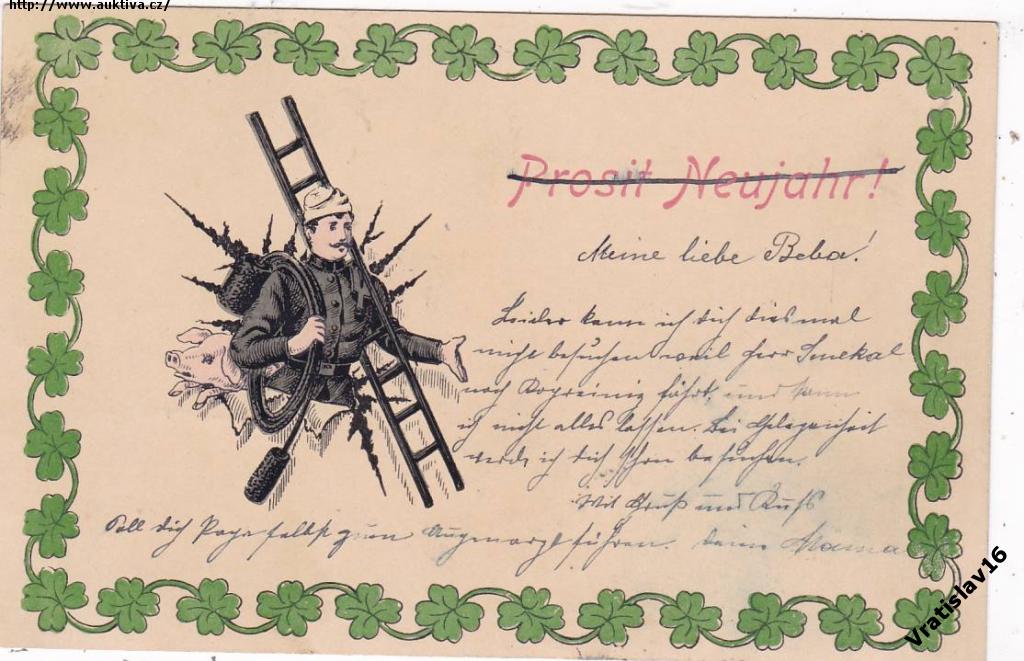 http://www.auktiva.cz/
Prosit Neujahr!
Meine liebe Beba!
Leider kann ich dich diesmal
nicht besuchen weil Herr Smekal
nach fährt, und kann
ich nicht alles lassen. Bei Gelegenheit
werde ich dich schon besuchen.
Mit Gruß und Kuß
Soll dich Papa selbst zum Augenarzt führen. deine Mama
Vratislav16